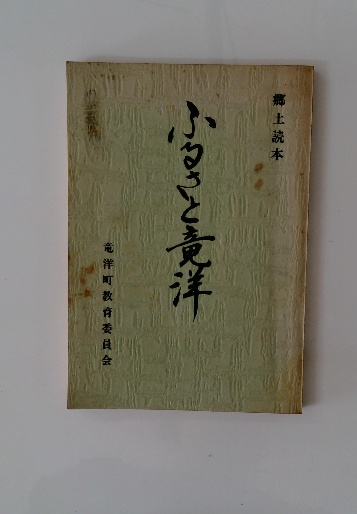 郷土読本
ふるさと竜洋
竜洋町教育委員会